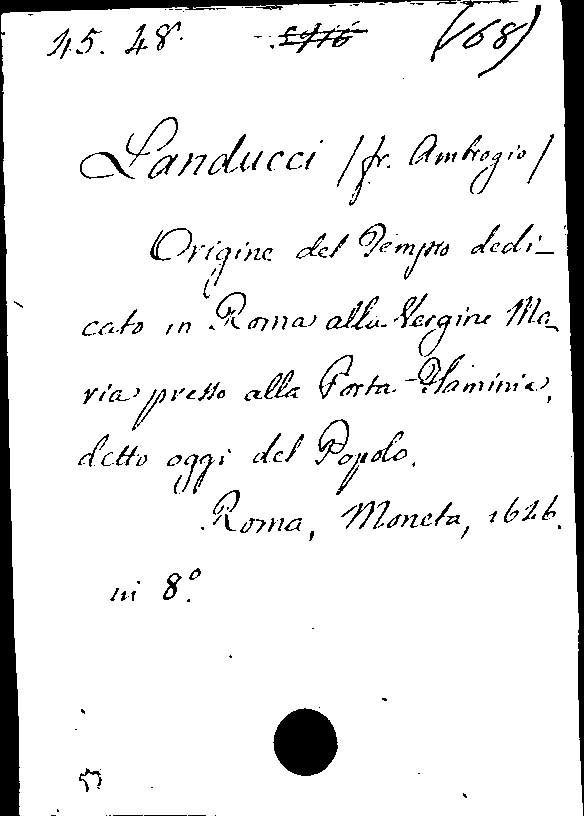 45. 48. (68)
Landucci /fr. Ambrogio/
Origine del Tempio dedi-
cato in Roma alla Vergine Ma-
ria presso alla Porta Flaminia,
detto oggi del Popolo.
Roma, Moneta, 1626.
in 8.º